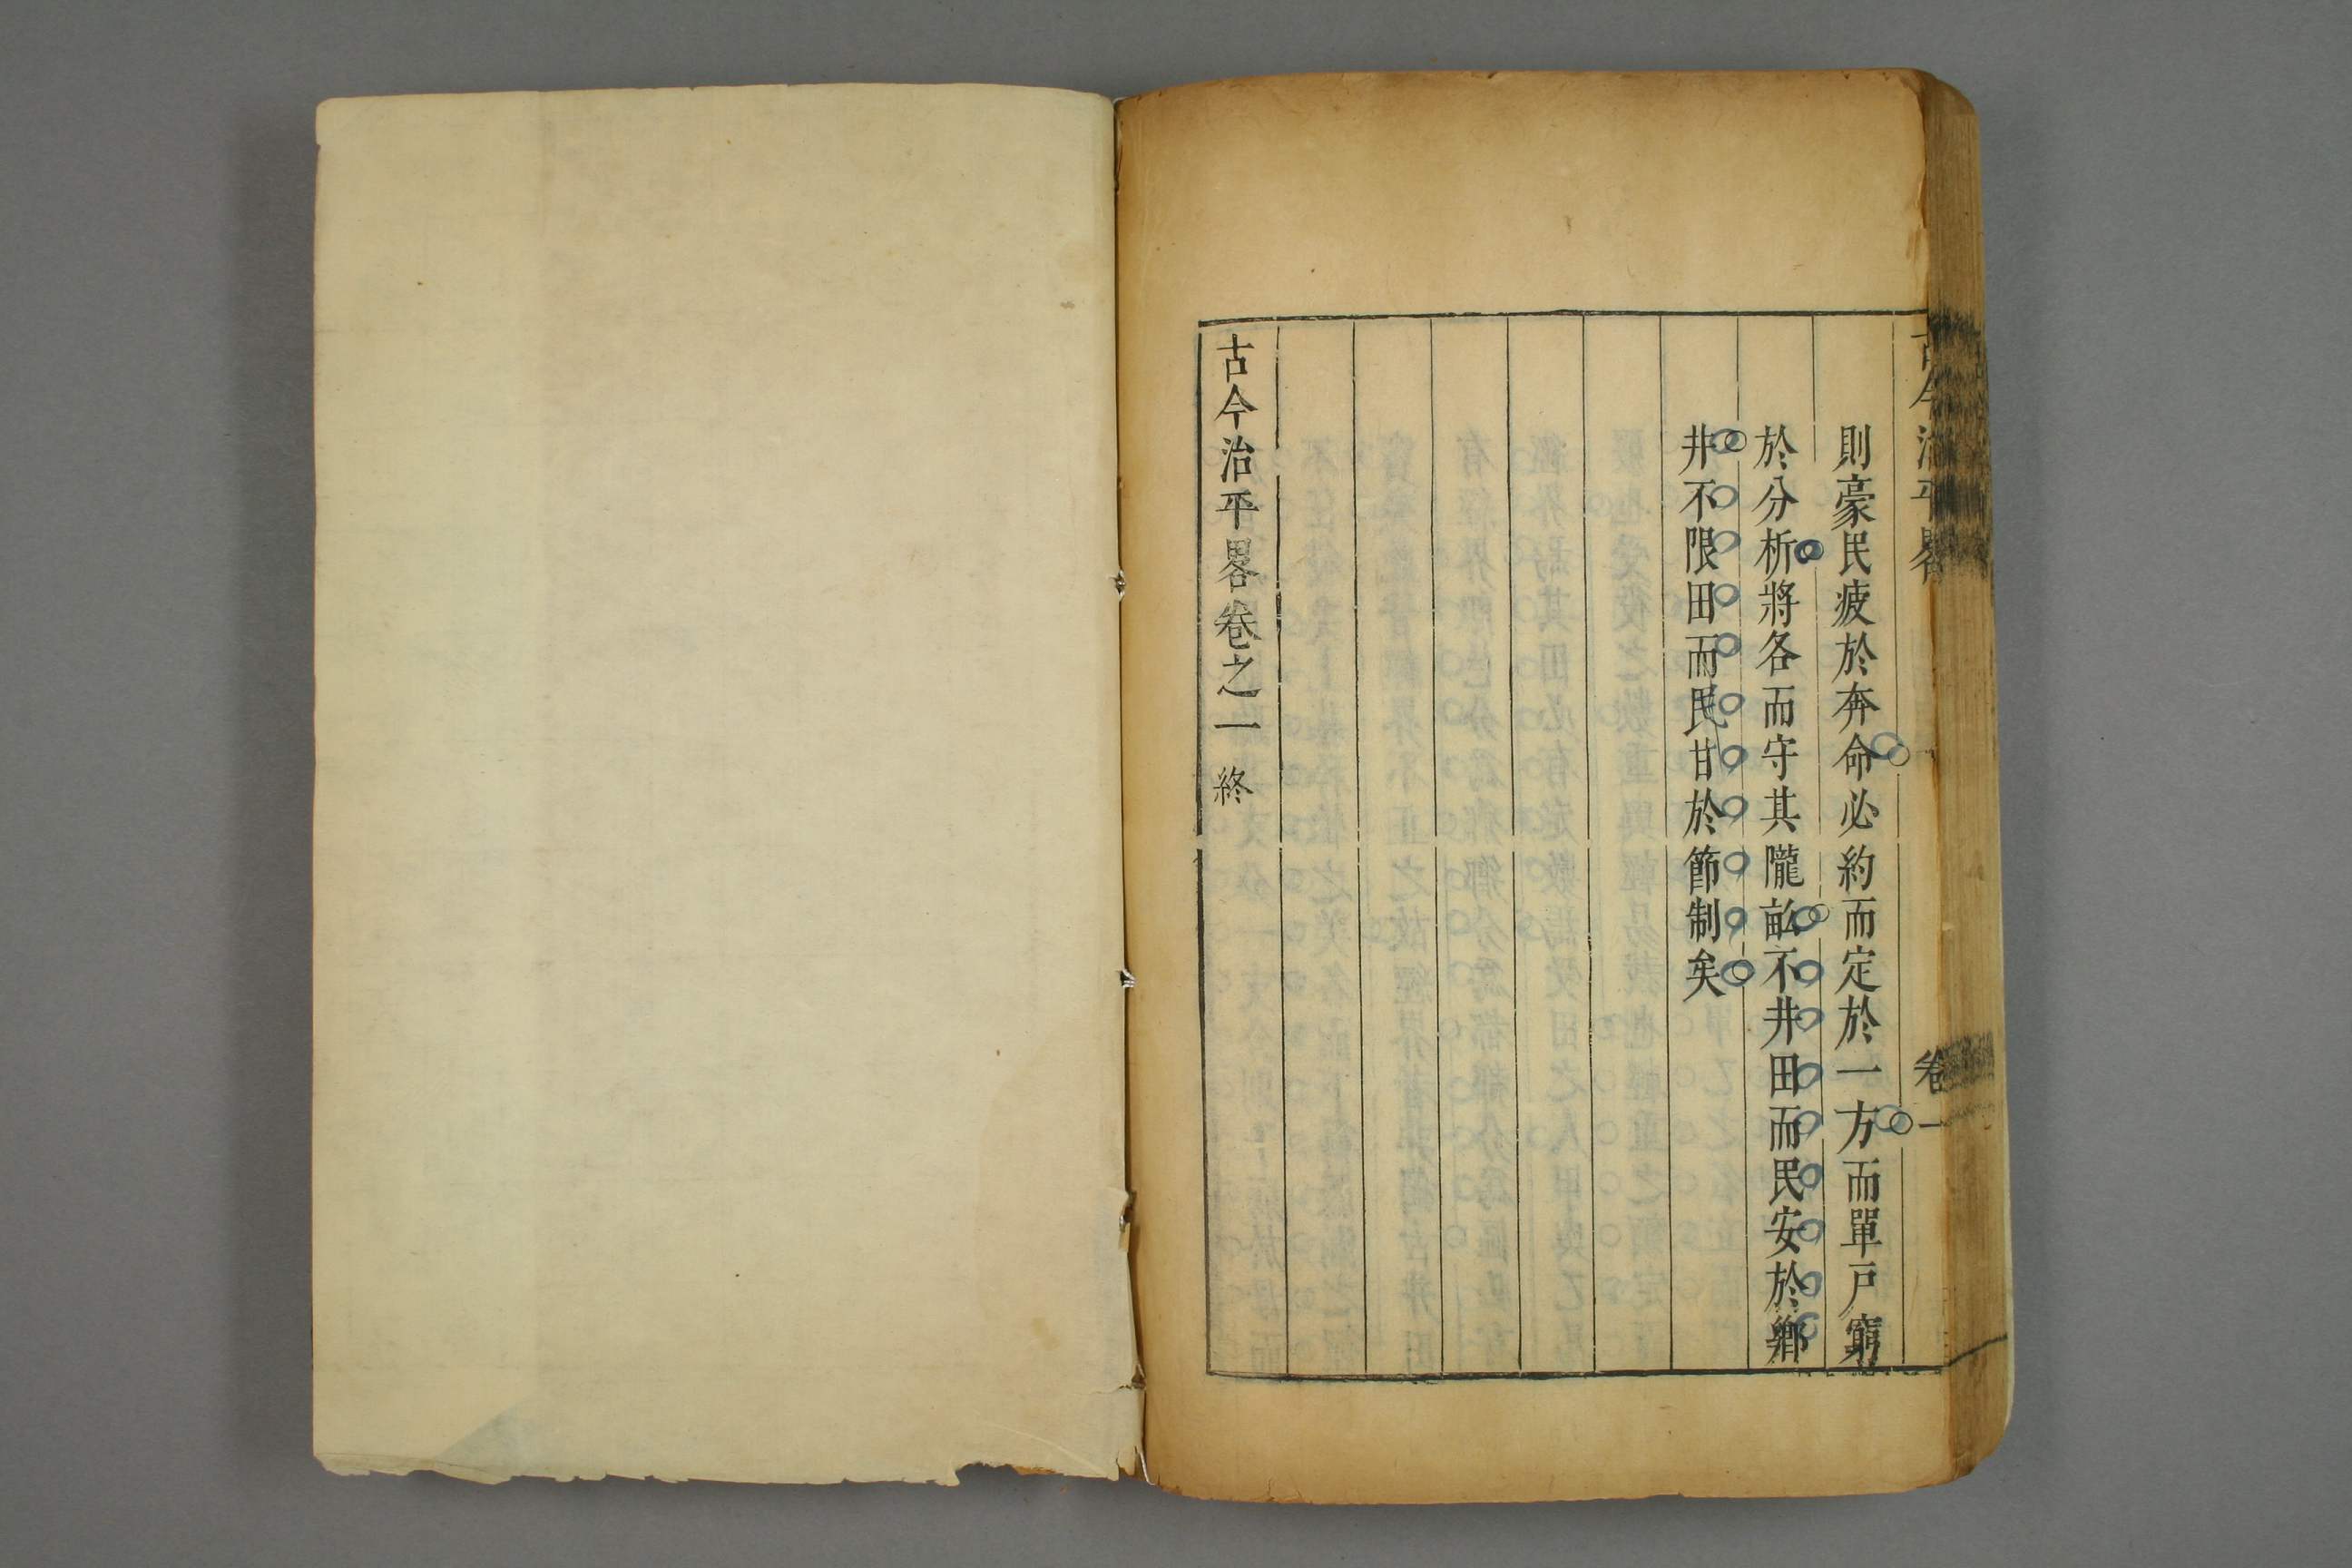 古今治平畧
卷一
則豪民疲於奔命必約而定於一方而單戸窮
於分析將各而守其隴畝不井田而民安於鄉
井不限田而民甘於節制矣
古今治平畧卷之一 終